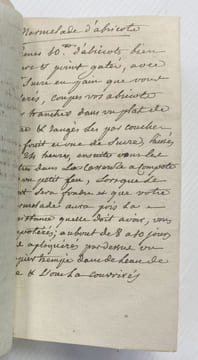 Marmelade d'abricots
d'abricots bien
et point gatés, avec
Sucre en pain que vous
coupés vos abricots
tranches dans un plat de
& rangés les par couches
et une de Sucre, laissés
24 heures, ensuite vous le
dans la casserole a compote
un petit feu, lorsque le
Sera fondu et que votre
aura pris la
quelle doit avoir, vous
au bout de 8 a 10 jours
par dessus un
trempé dans de leau de
& vous la couvrirés